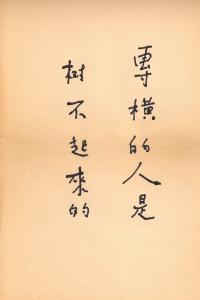 專橫的人是
树不起來的